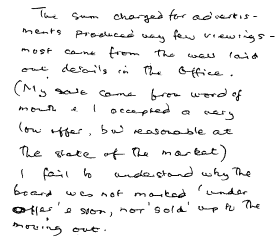 The sum charged for advertis-
ments produced very few viewings -
most came from the well laid
out details in the Office.
(My sale came from word of
mouth & I accepted a very
low offer, but reasonable at
the state of the market)
I fail to understand why the
board was not marked 'under
offer' & soon, nor 'sold' up to the
moving out.